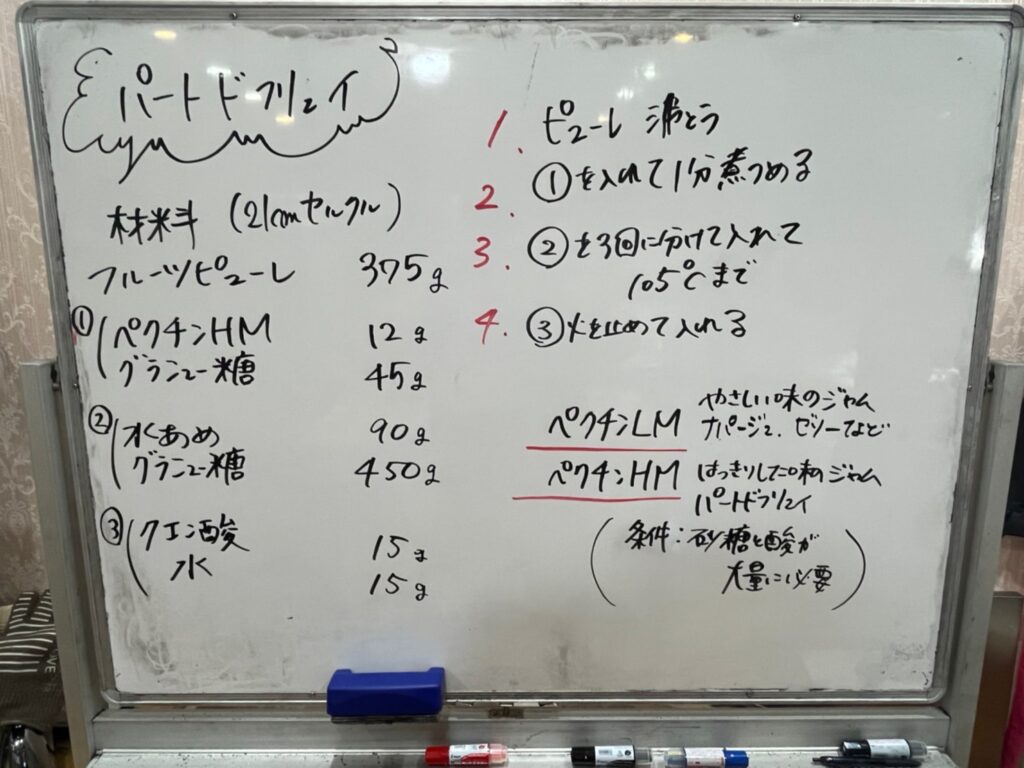 パートドフリュイ
材料 (21cmセルクル)
フルーツピューレ 375g
① ペクチンHM 12g
グラニュー糖 45g
② 水あめ 90g
グラニュー糖 450g
③ クエン酸 15g
水 15g
1. ピューレ 沸とう
2. ①を入れて1分煮つめる
3. ②を3回に分けて入れて
105℃まで
4. ③火を止めて入れる
ペクチンLM やさしい味のジャム
ナパージュ、ゼリーなど
ペクチンHM はっきりした味のジャム
パートドフリュイ
(条件:砂糖と酸が
大量に必要)